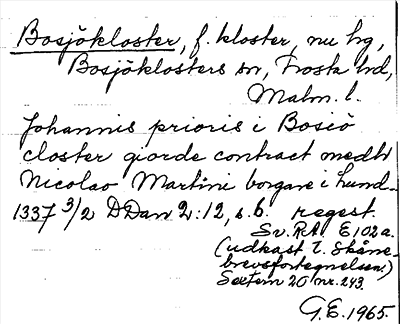 Bosjökloster, f. kloster, nu hg,
Bosjöklosters sn, Frosta hd,
Malm. l.
Johannis prioris i Bosiö
closter giorde contract medh
Nicolao Martini borgare i Lund
1337 3/2 DDan 2:12, s. 6. regest.
Sv. RA E 102a.
(udkast t. Skåne-
brevsfortegnelsen)
Sextern 20 nr. 243.
G.E. 1965.